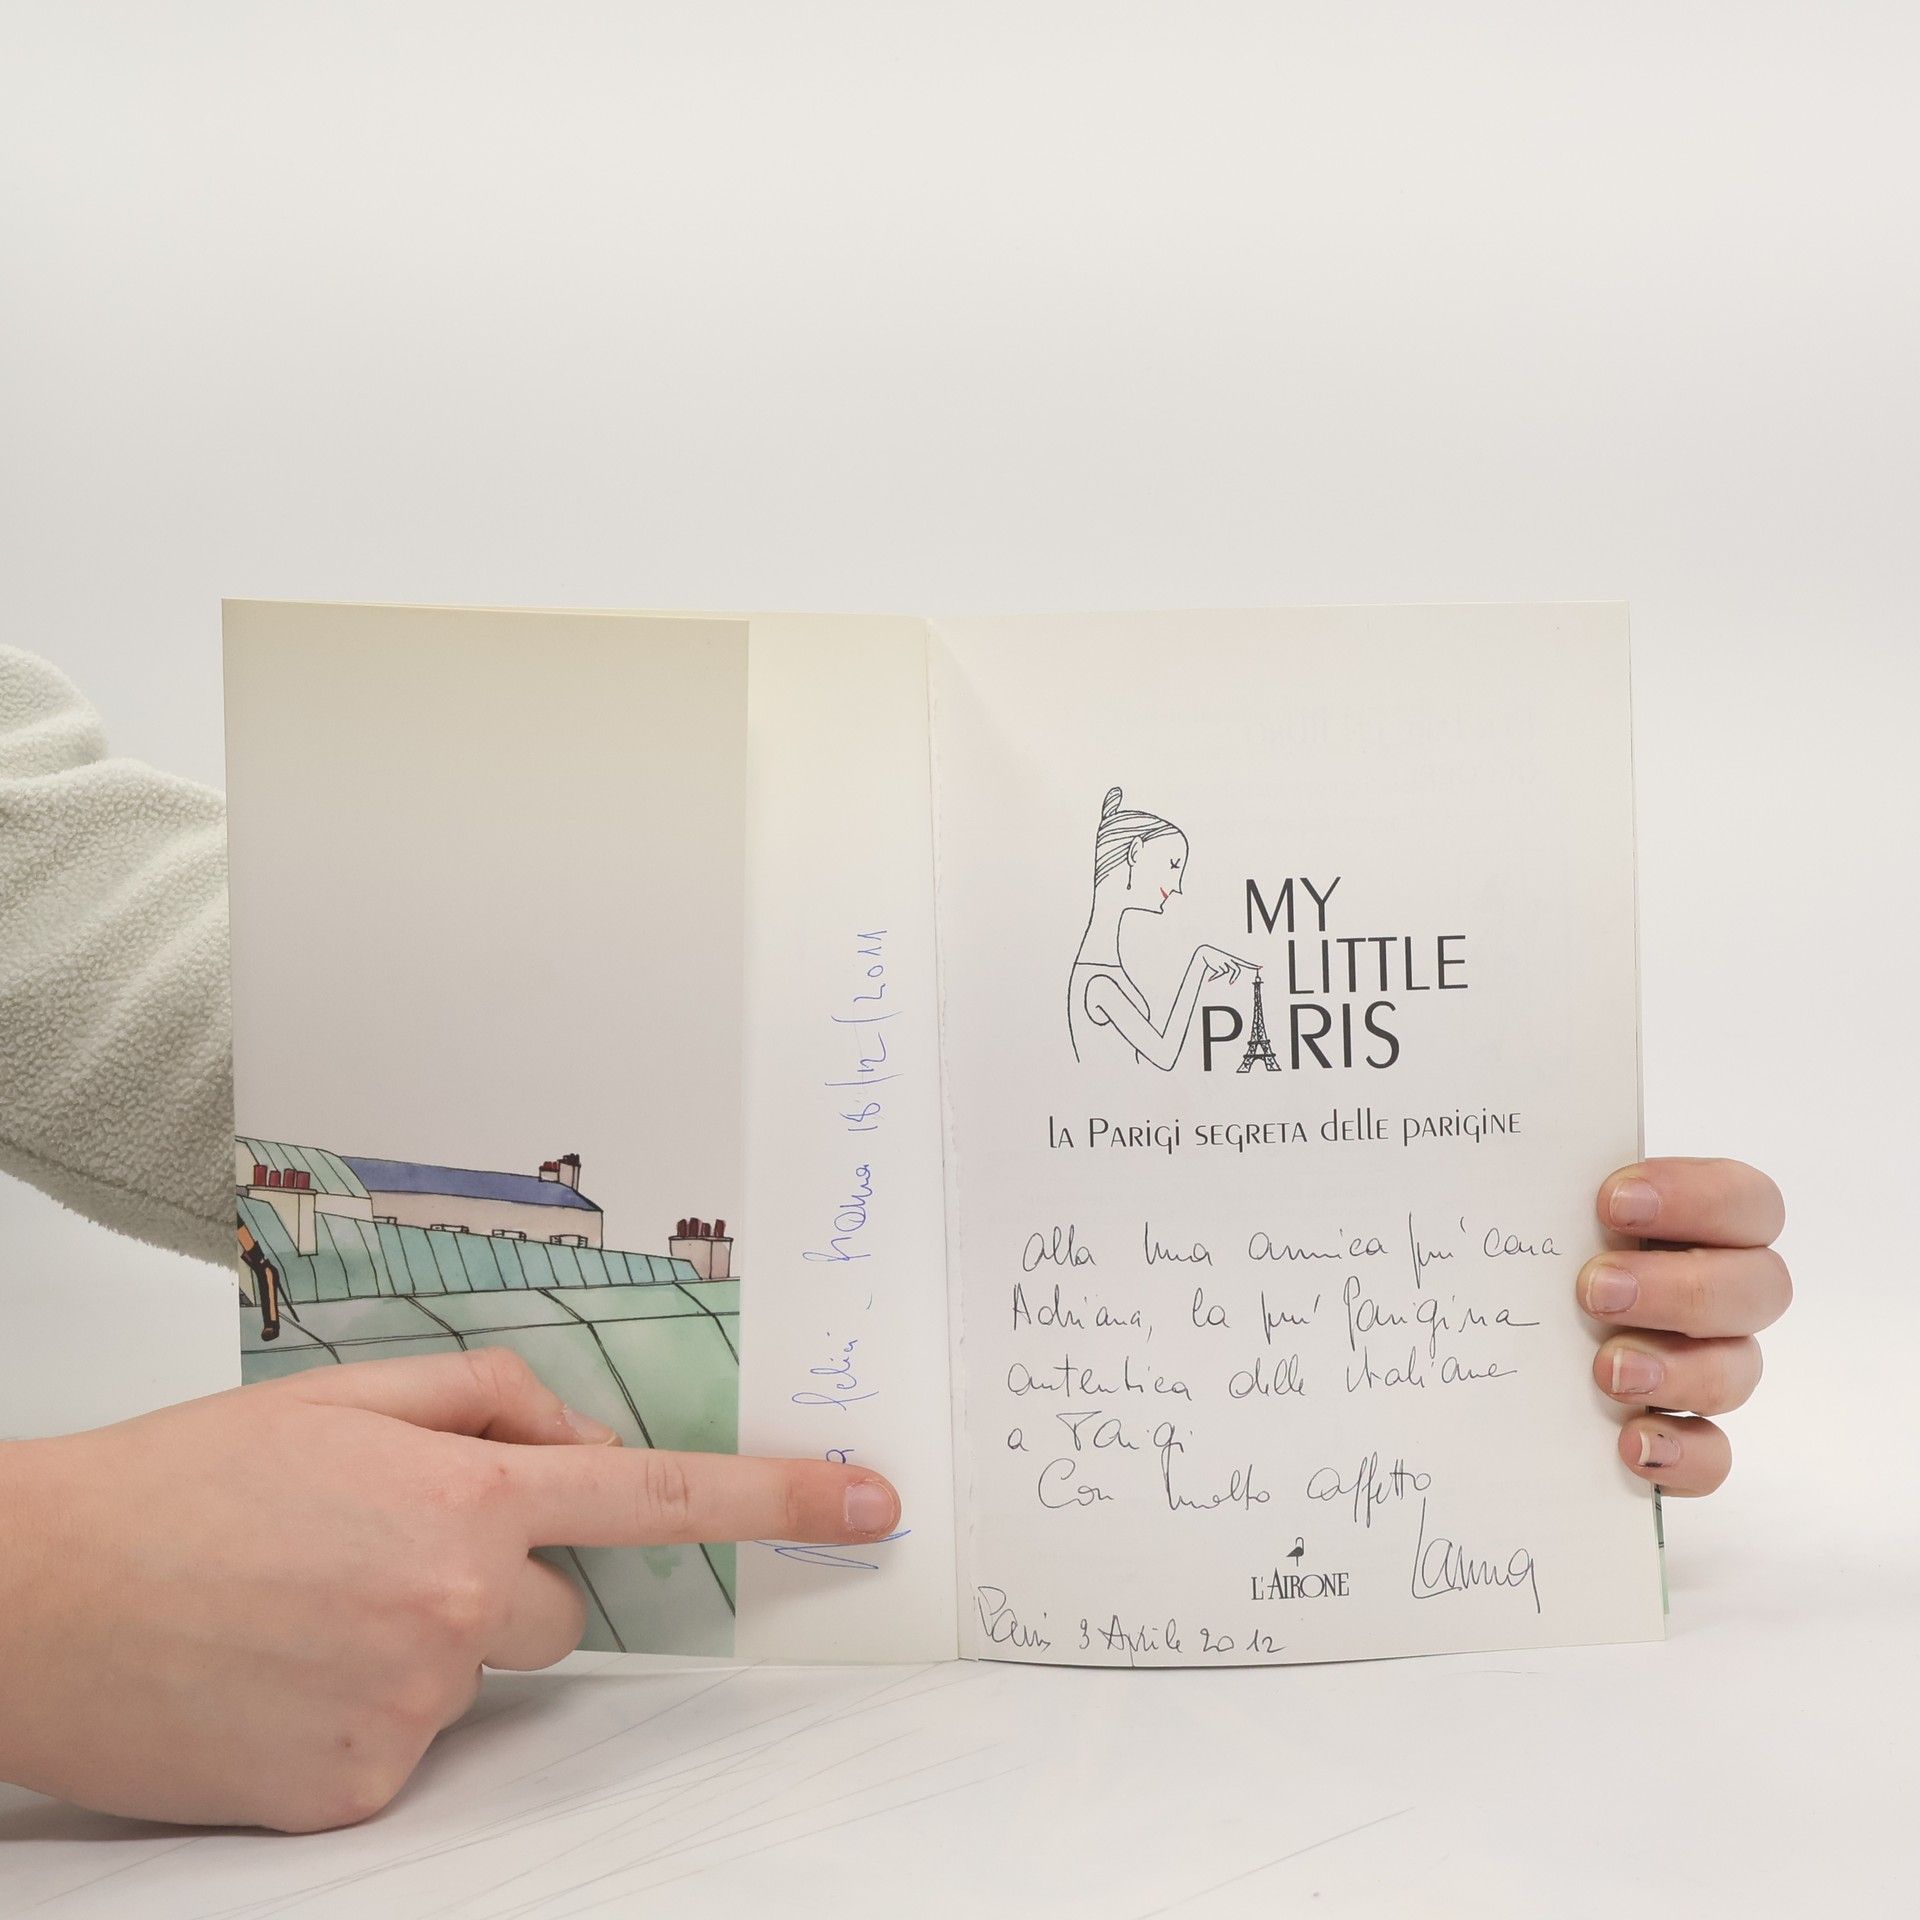 felici - Roma 18/12/2011
MY
LITTLE
PARIS
la Parigi segreta delle parigine
alla mia amica più cara
Adriana, la più Parigina
autentica delle italiane
a Parigi
Con molto affetto
L'AIRONE
Paris 3 Aprile 2012